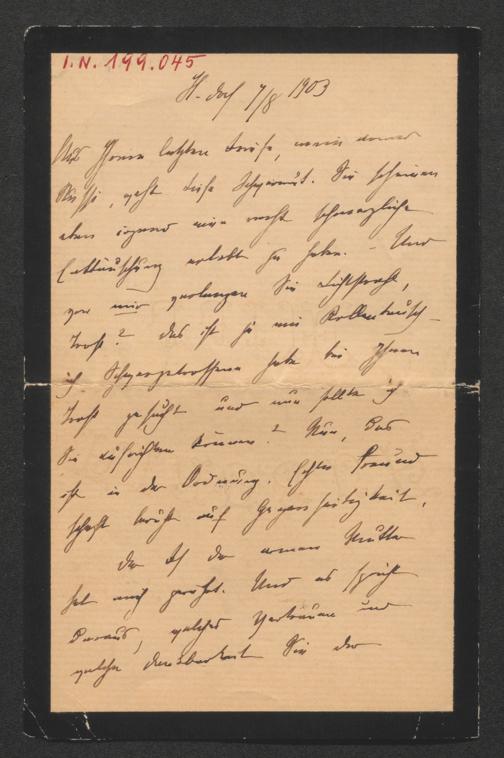 I.N. 199.045
H.-dorf 7/8 1903
Aus Ihrem letzten Briefe, mein armer
geht tiefe Schwermut. Sie scheinen
eben irgend eine recht schmerzliche
Enttäuschung erlebt zu haben. – Und
von mir verlangen Sie Lichtstrahl,
Trost? Das ist ja ein Rollentausch –
ich Schwergetroffene habe bei Ihnen
Trost gesucht und nun sollte ich
Sie aufrichten können? Nun, das
ist in der Ordnung. Echte Freund
schaft beruht auf Gegenseitigkeit.
Der der armen Mutter
hat mich gerührt. Und es spricht
daraus, welches Vertrauen und
welche Dankbarkeit Sie der